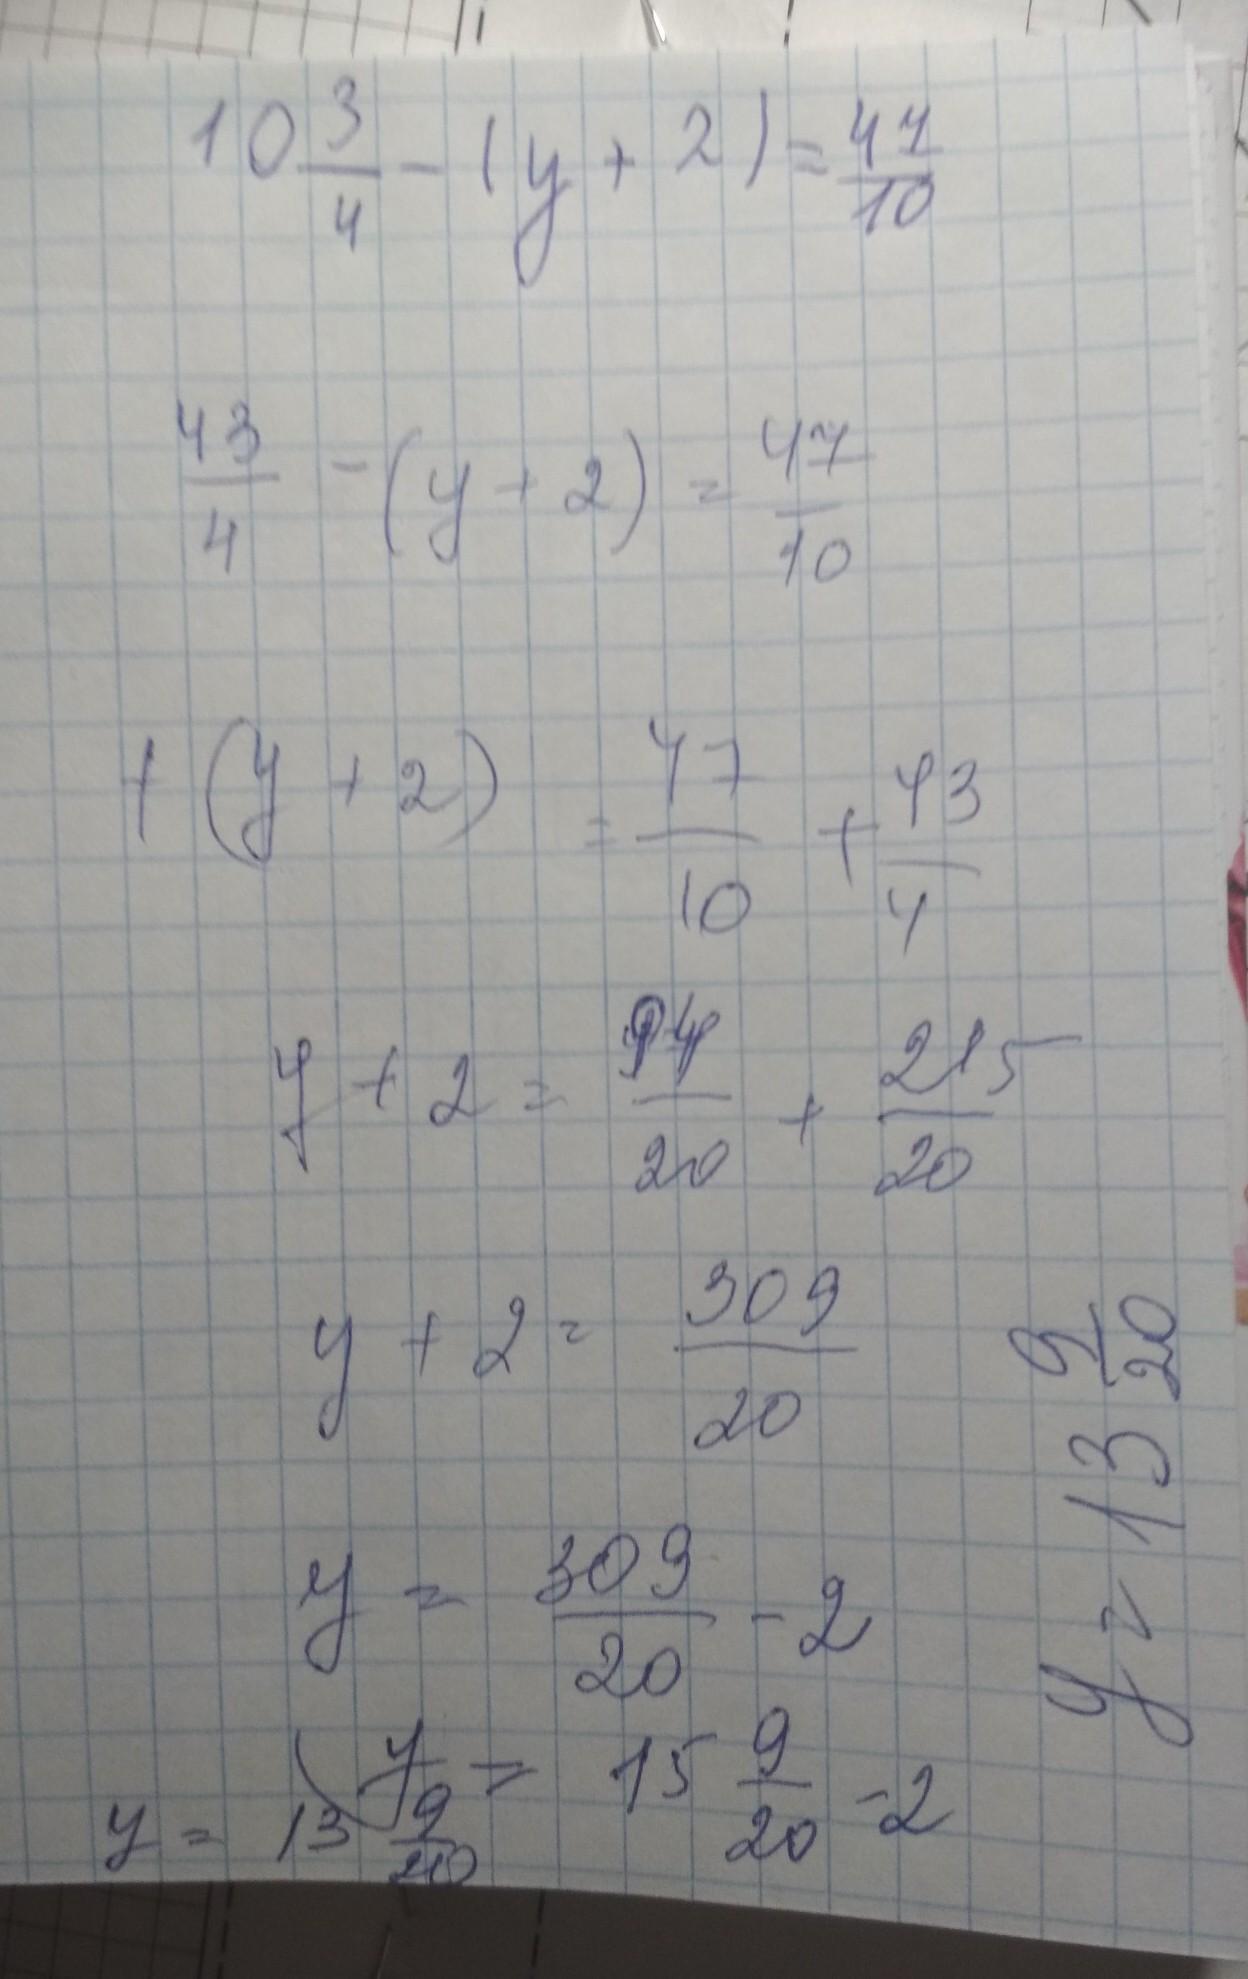 10 3/4 - (y + 2) = 47/10
43/4 - (y + 2) = 47/10
+ (y + 2) = 47/10 + 43/4
y + 2 = 94/20 + 215/20
y + 2 = 309/20
y = 309/20 - 2
y = 15 9/20 - 2
y = 13 9/20
y = 13 9/20